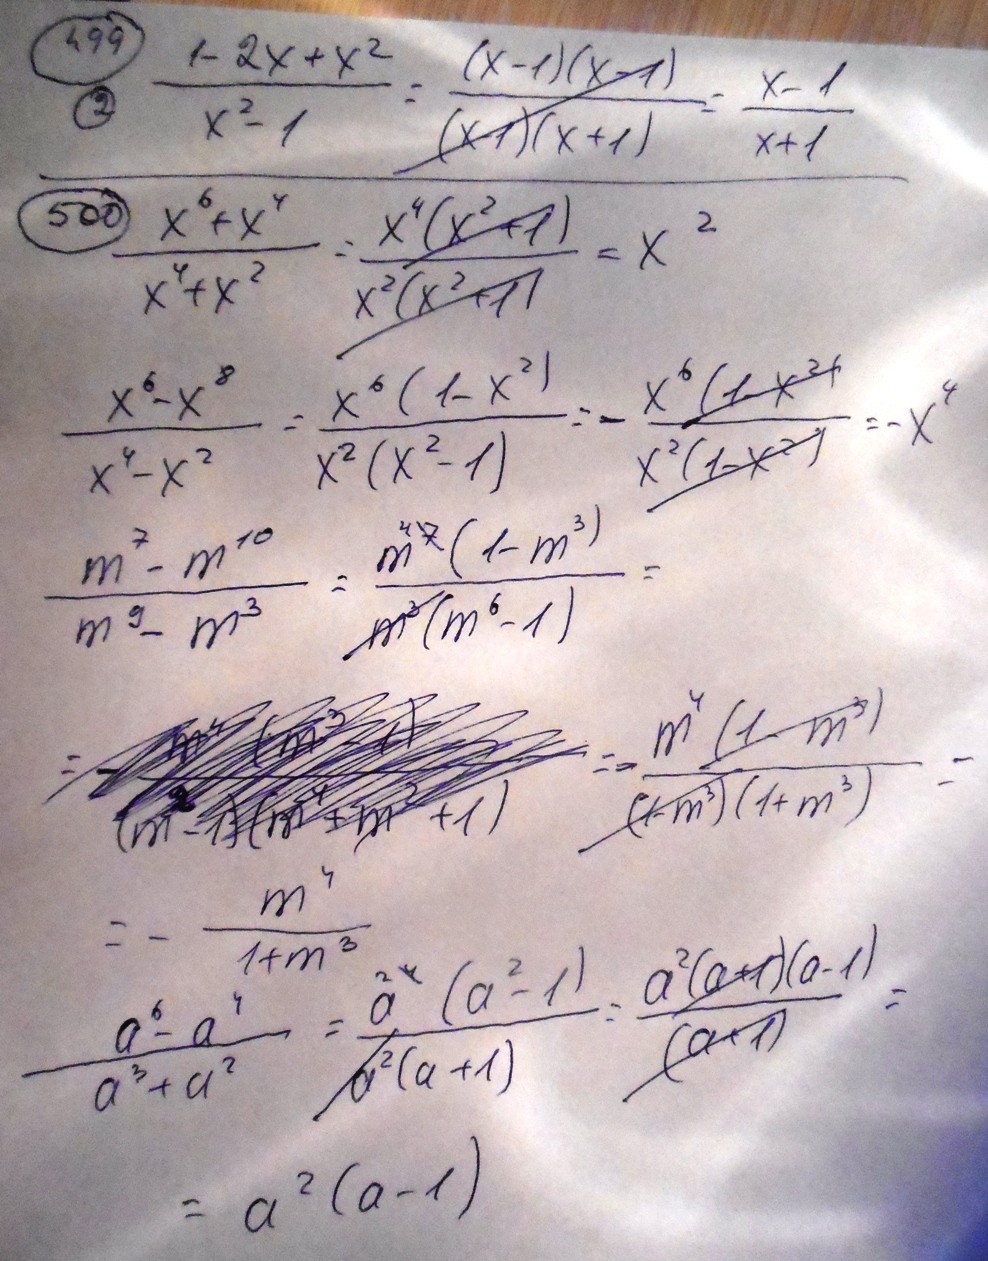 499
② (1-2x+x²)/(x²-1) = ((x-1)(x-1))/((x-1)(x+1)) = (x-1)/(x+1)
500 (x⁶+x⁴)/(x⁴+x²) = (x⁴(x²+1))/(x²(x²+1)) = x²
(x⁶-x⁸)/(x⁴-x²) = (x⁶(1-x²))/(x²(x²-1)) = -(x⁶(1-x²))/(x²(1-x²)) = -x⁴
(m⁷-m¹⁰)/(m⁹-m³) = (m⁴⁷(1-m³))/(m³(m⁶-1)) =
= - = -(m⁴(1-m³))/((1-m³)(1+m³)) =
= - m⁴/(1+m³)
(a⁶-a⁴)/(a³+a²) = (a²⁴(a²-1))/(a²(a+1)) = (a²(a+1)(a-1))/(a+1) =
= a²(a-1)